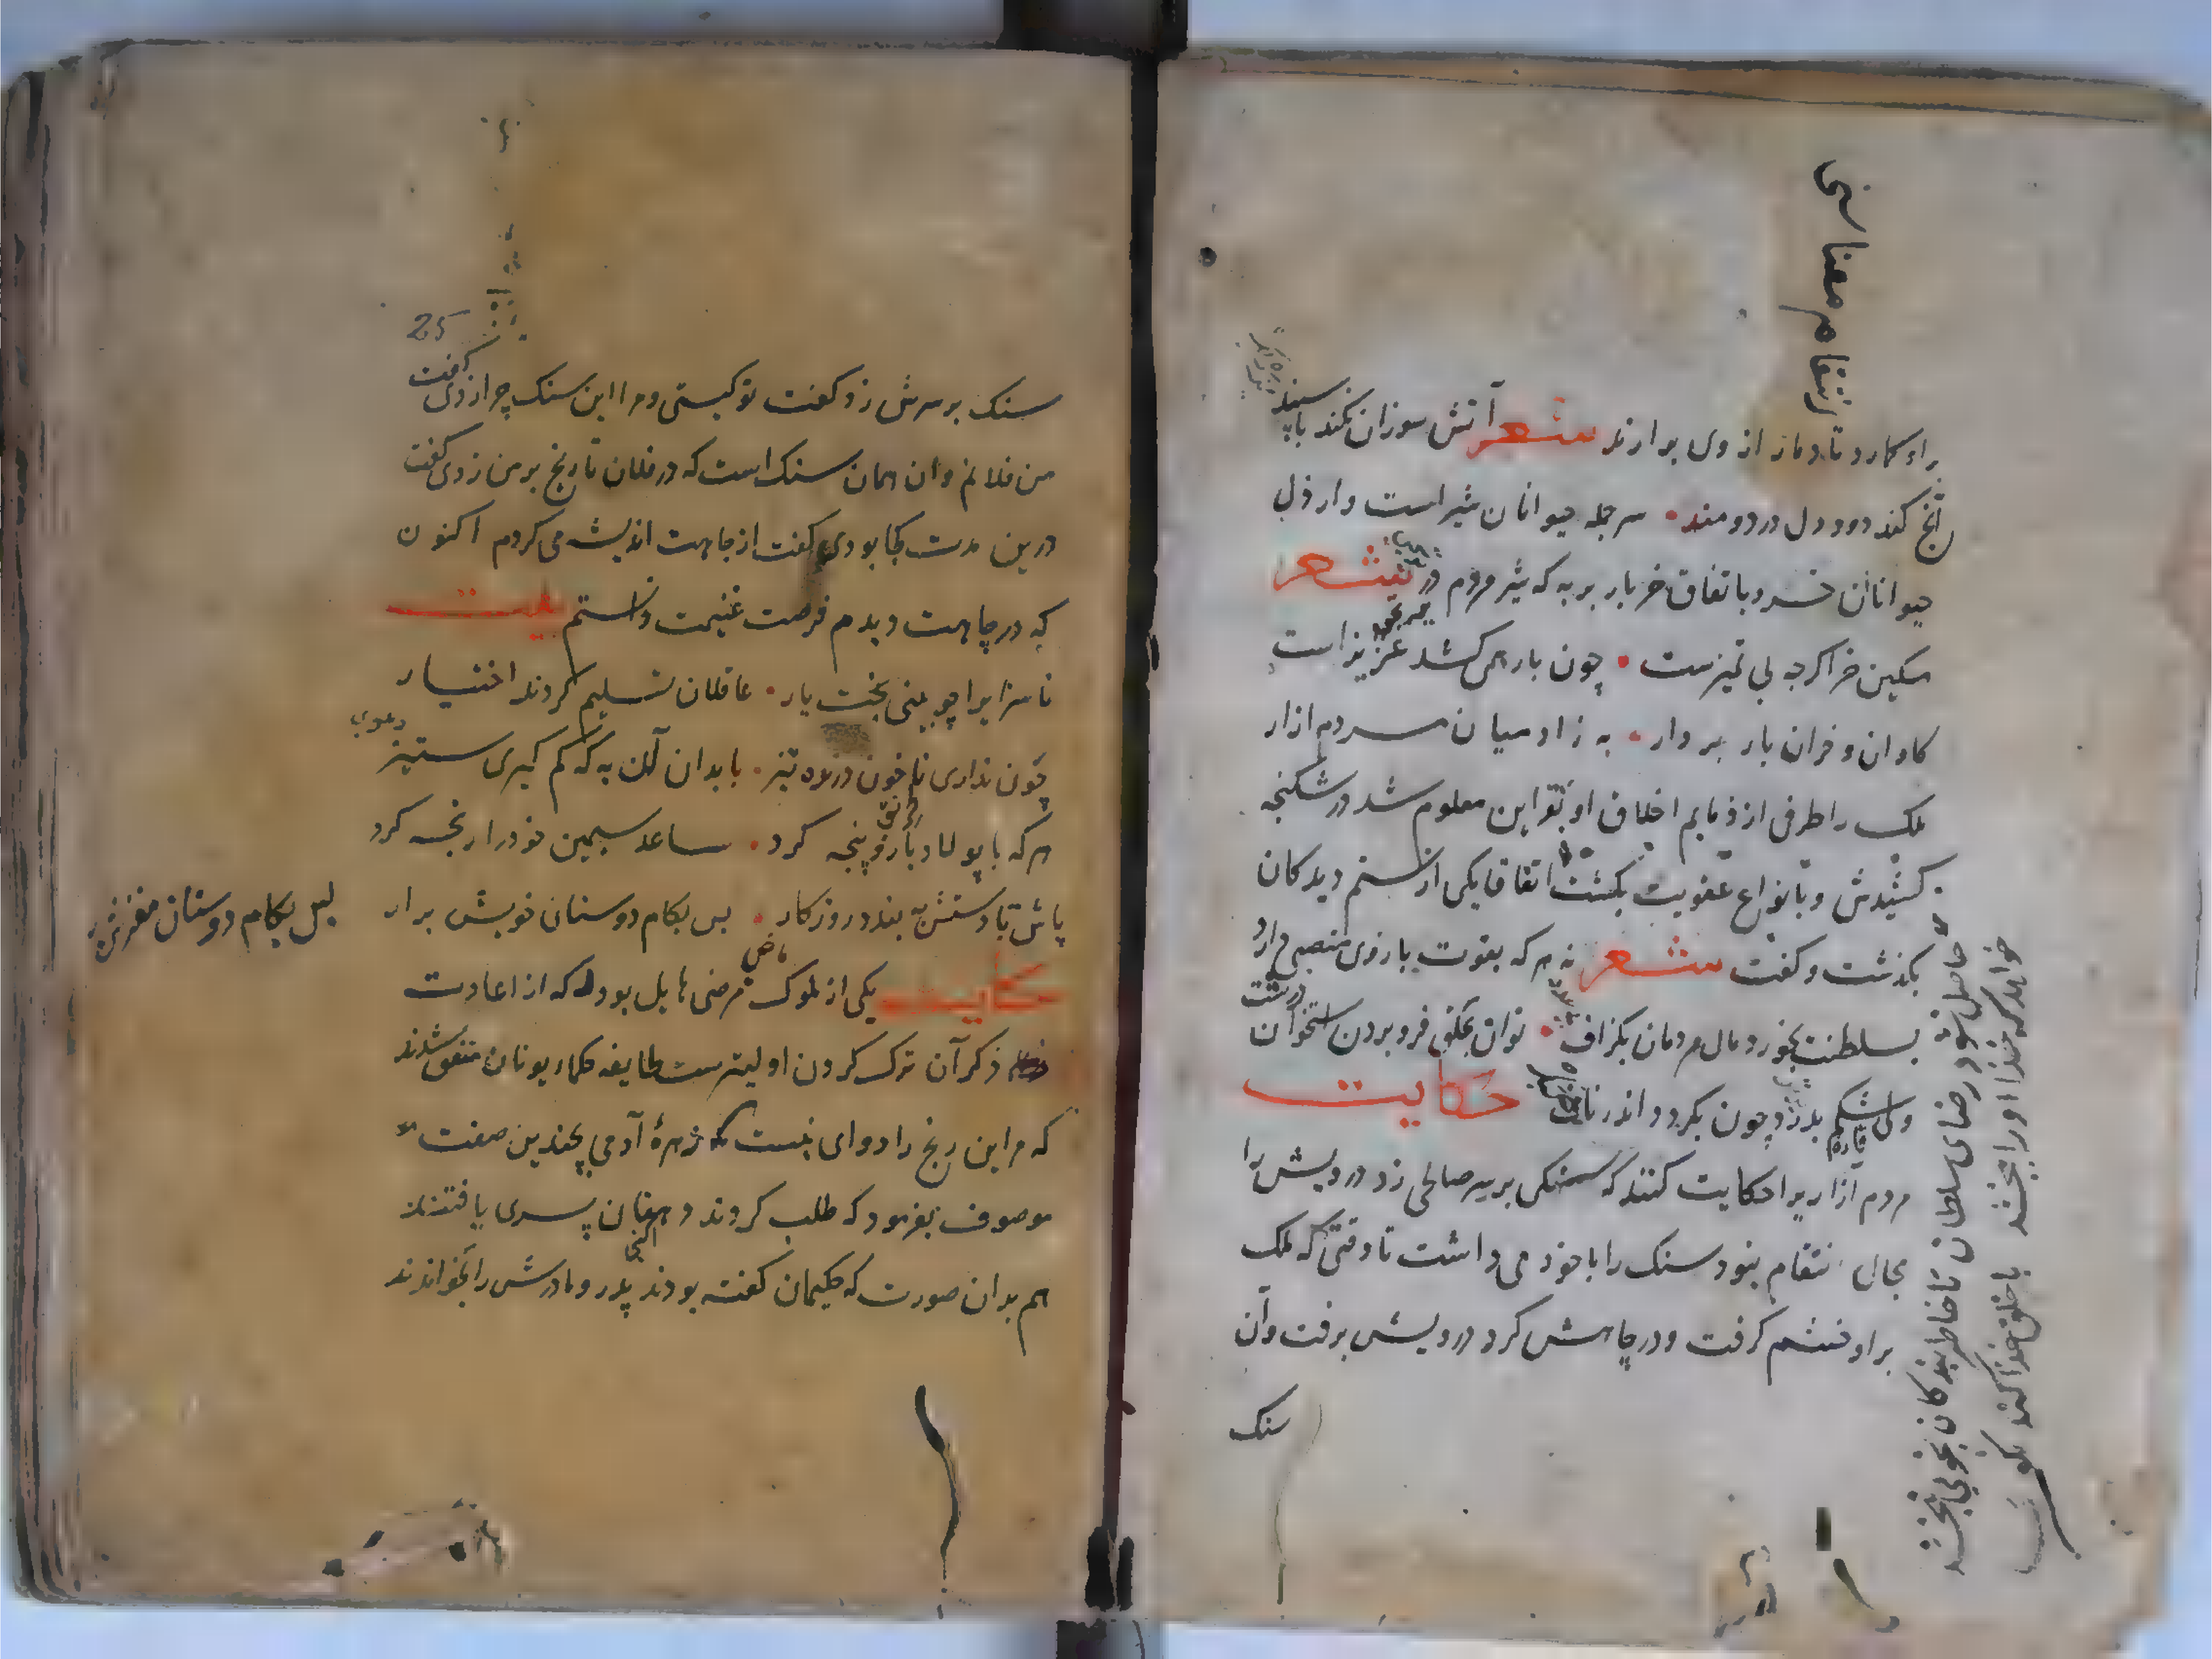 براو کمارد تا دمار از وی برارند شعر آتش سوزان نکند با سپند
آنج کند دود دل دردمند سر جمله حیوانات شیر است وارذل
حیوانات خر و باتفاق خر بار بر به که شیر مردم در شعر
مسکین خر اکرجه بی تمیزست چون بار همی کشد عزیز است
کاوان و خران بار بردار به ز ادمیان مردم ازار
ملک را طرفی از ذمایم اخلاق او بقراین معلوم شد در شکنجه
کشیدش و بانواع عقوبت بکشت اتفاقا یکی از ستم دیدکان
بکذشت و کفت شعر نه هر که بقوت بازوی منصبی دارد
بسلطنت بخورد مال مردمان بکزاف توان بحلق فرو بردن استخوان درشت
ولی شکم بدرد چون بکیرد اندر ناف حکایت
مردم آزاریرا حکایت کنند که سنکی بر سر صالحی زد درویش را
مجال انتقام نبود سنک را با خود می داشت تا وقتی که ملک
براو خشم کرفت و در چاهش کرد درویش برفت وآن
سنک
انتقام معناسی
حاصل نشود رضای سلطان تا خاطر بندکان نجویی نبخشد
خواهد که خدا اورا بخشد با خلق خدا کند نکویی
25
سنک بر سرش زد کفت تو کیستی و مرا این سنک چرا زدی کفت
من فلانم وان همان سنک است که در فلان تاریخ بر من زدی کفت
درین مدت کجا بودی کفت از جاهت اندیشه می کردم اکنون
که در چاهت دیدم فرصت غنیمت دانستم بیت
ناسزایرا چو بینی بخت یار عاقلان تسلیم کردند اختیار
چون نداری ناخون درنده تیز با بدان آن به که کم کیری ستیز
دعوی
هر که با پولاد بازو پنجه کرد ساعد سیمین خود را رنجه کرد
باش تا دستش ببندد روزکار بس بکام دوستان خویش برار
بس بکام دوستان مغزش برار
حکایت یکی از ملوک مرضی هایل بود که از اعادت
ذکر آن ترک کردن اولیترست طایفه حکماء یونان متفق شدند
که مر این رنج را دوای نیست که زهرهٔ آدمی بچندین صفت
موصوف بفرمود که طلب کردند دهقان پسری یافتند
هم بدان صورت که حکیمان کفته بودند پدر و مادرش را بخواندند